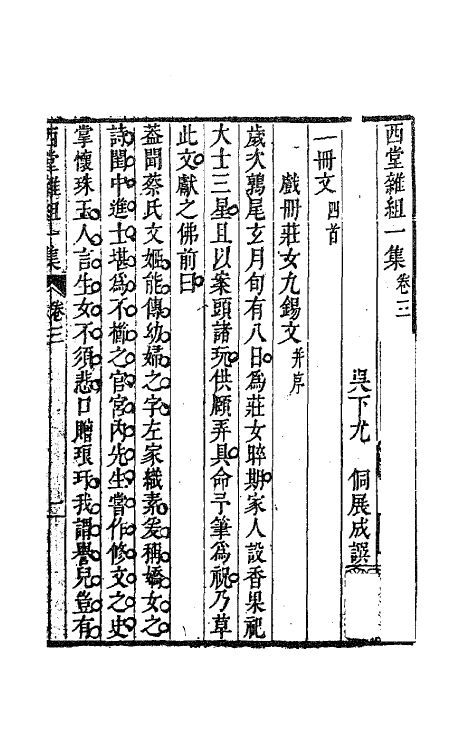 西堂雜組一集 卷三
吳下尤 侗展成譔
一冊文 四首
戲冊莊女九錫文 并序
歲次鶉尾玄月旬有八日為莊女晬期家人設香果祀
大士三星且以案頭諸玩供願弄具命予筆為祝乃草
此文獻之佛前曰
葢聞蔡氏文姬能傳幼婦之字左家織素爰稱嬌女之
詩閨中進士堪為不櫛之官宮內先生嘗作修文之史
掌懷珠玉人言生女不須悲口贈琅玕我謂譽兒豈有
西堂雜組一集 卷三 一